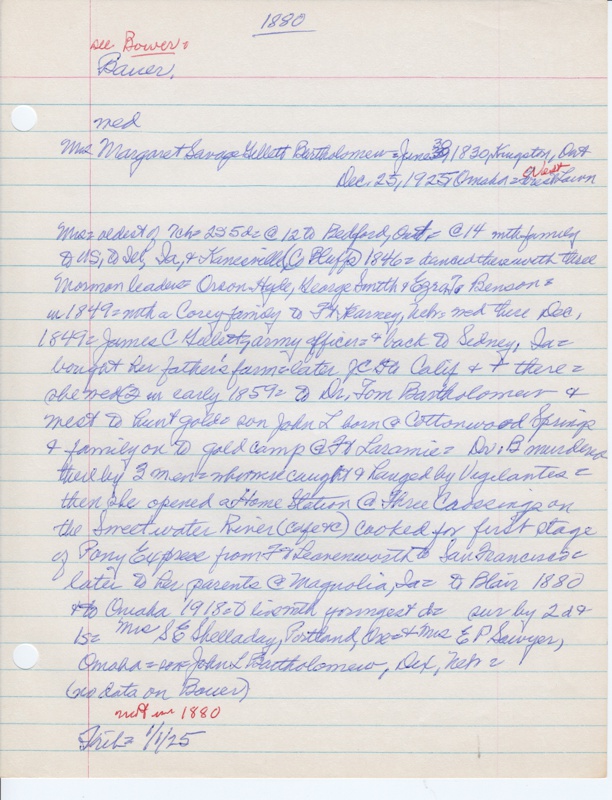 1880
see Bower =
Bauer,
med
Mrs. Margaret Savage Gillett Bartholomew = June 30, 1830, Kingston, Ont
Dec. 25, 1925, Omaha = West Lawn
Mrs = oldest of 7ch = 2s 5d = @ 12 to Bedford, Ont = @ 14 mth family
to US, to Seb, Ia, & Kanesville (C. Bluffs) 1846 = danced there with three
Mormon leaders = Orson Hyde, George Smith & Ezra T. Benson =
in 1849 = mth a Corey family to Ft. Kearney, Nebr = med there Dec,
1849 = James C Gillett, army officer = & back to Sidney, Ia =
bought her father's farm = later JC to Calif & + there =
she med (2 in early 1859 = to Dr. Tom Bartholomew &
went to hunt gold = son John L born @ Cottonwood Springs
& family on to gold camp @ Ft Laramie = Dr. B murdered
there by 3 men = who were caught & hanged by Vigilantes =
then she opened a Home Station @ Three Crossings on
the Sweetwater River (cafe &c) cooked for first stage
of Pony Express from Ft Leavenworth to San Francisco =
later to her parents @ Magnolia, Ia = to Blair 1880
& to Omaha 1918 = to liv mth youngest d = sur by 2d &
1s = Mrs S E Shelladay, Portland, Ore = & Mrs E P Sawyer,
Omaha = son John L Bartholomew, Dix, Nebr =
(no data on Bower)
not in 1880
Trib = 1/1/25